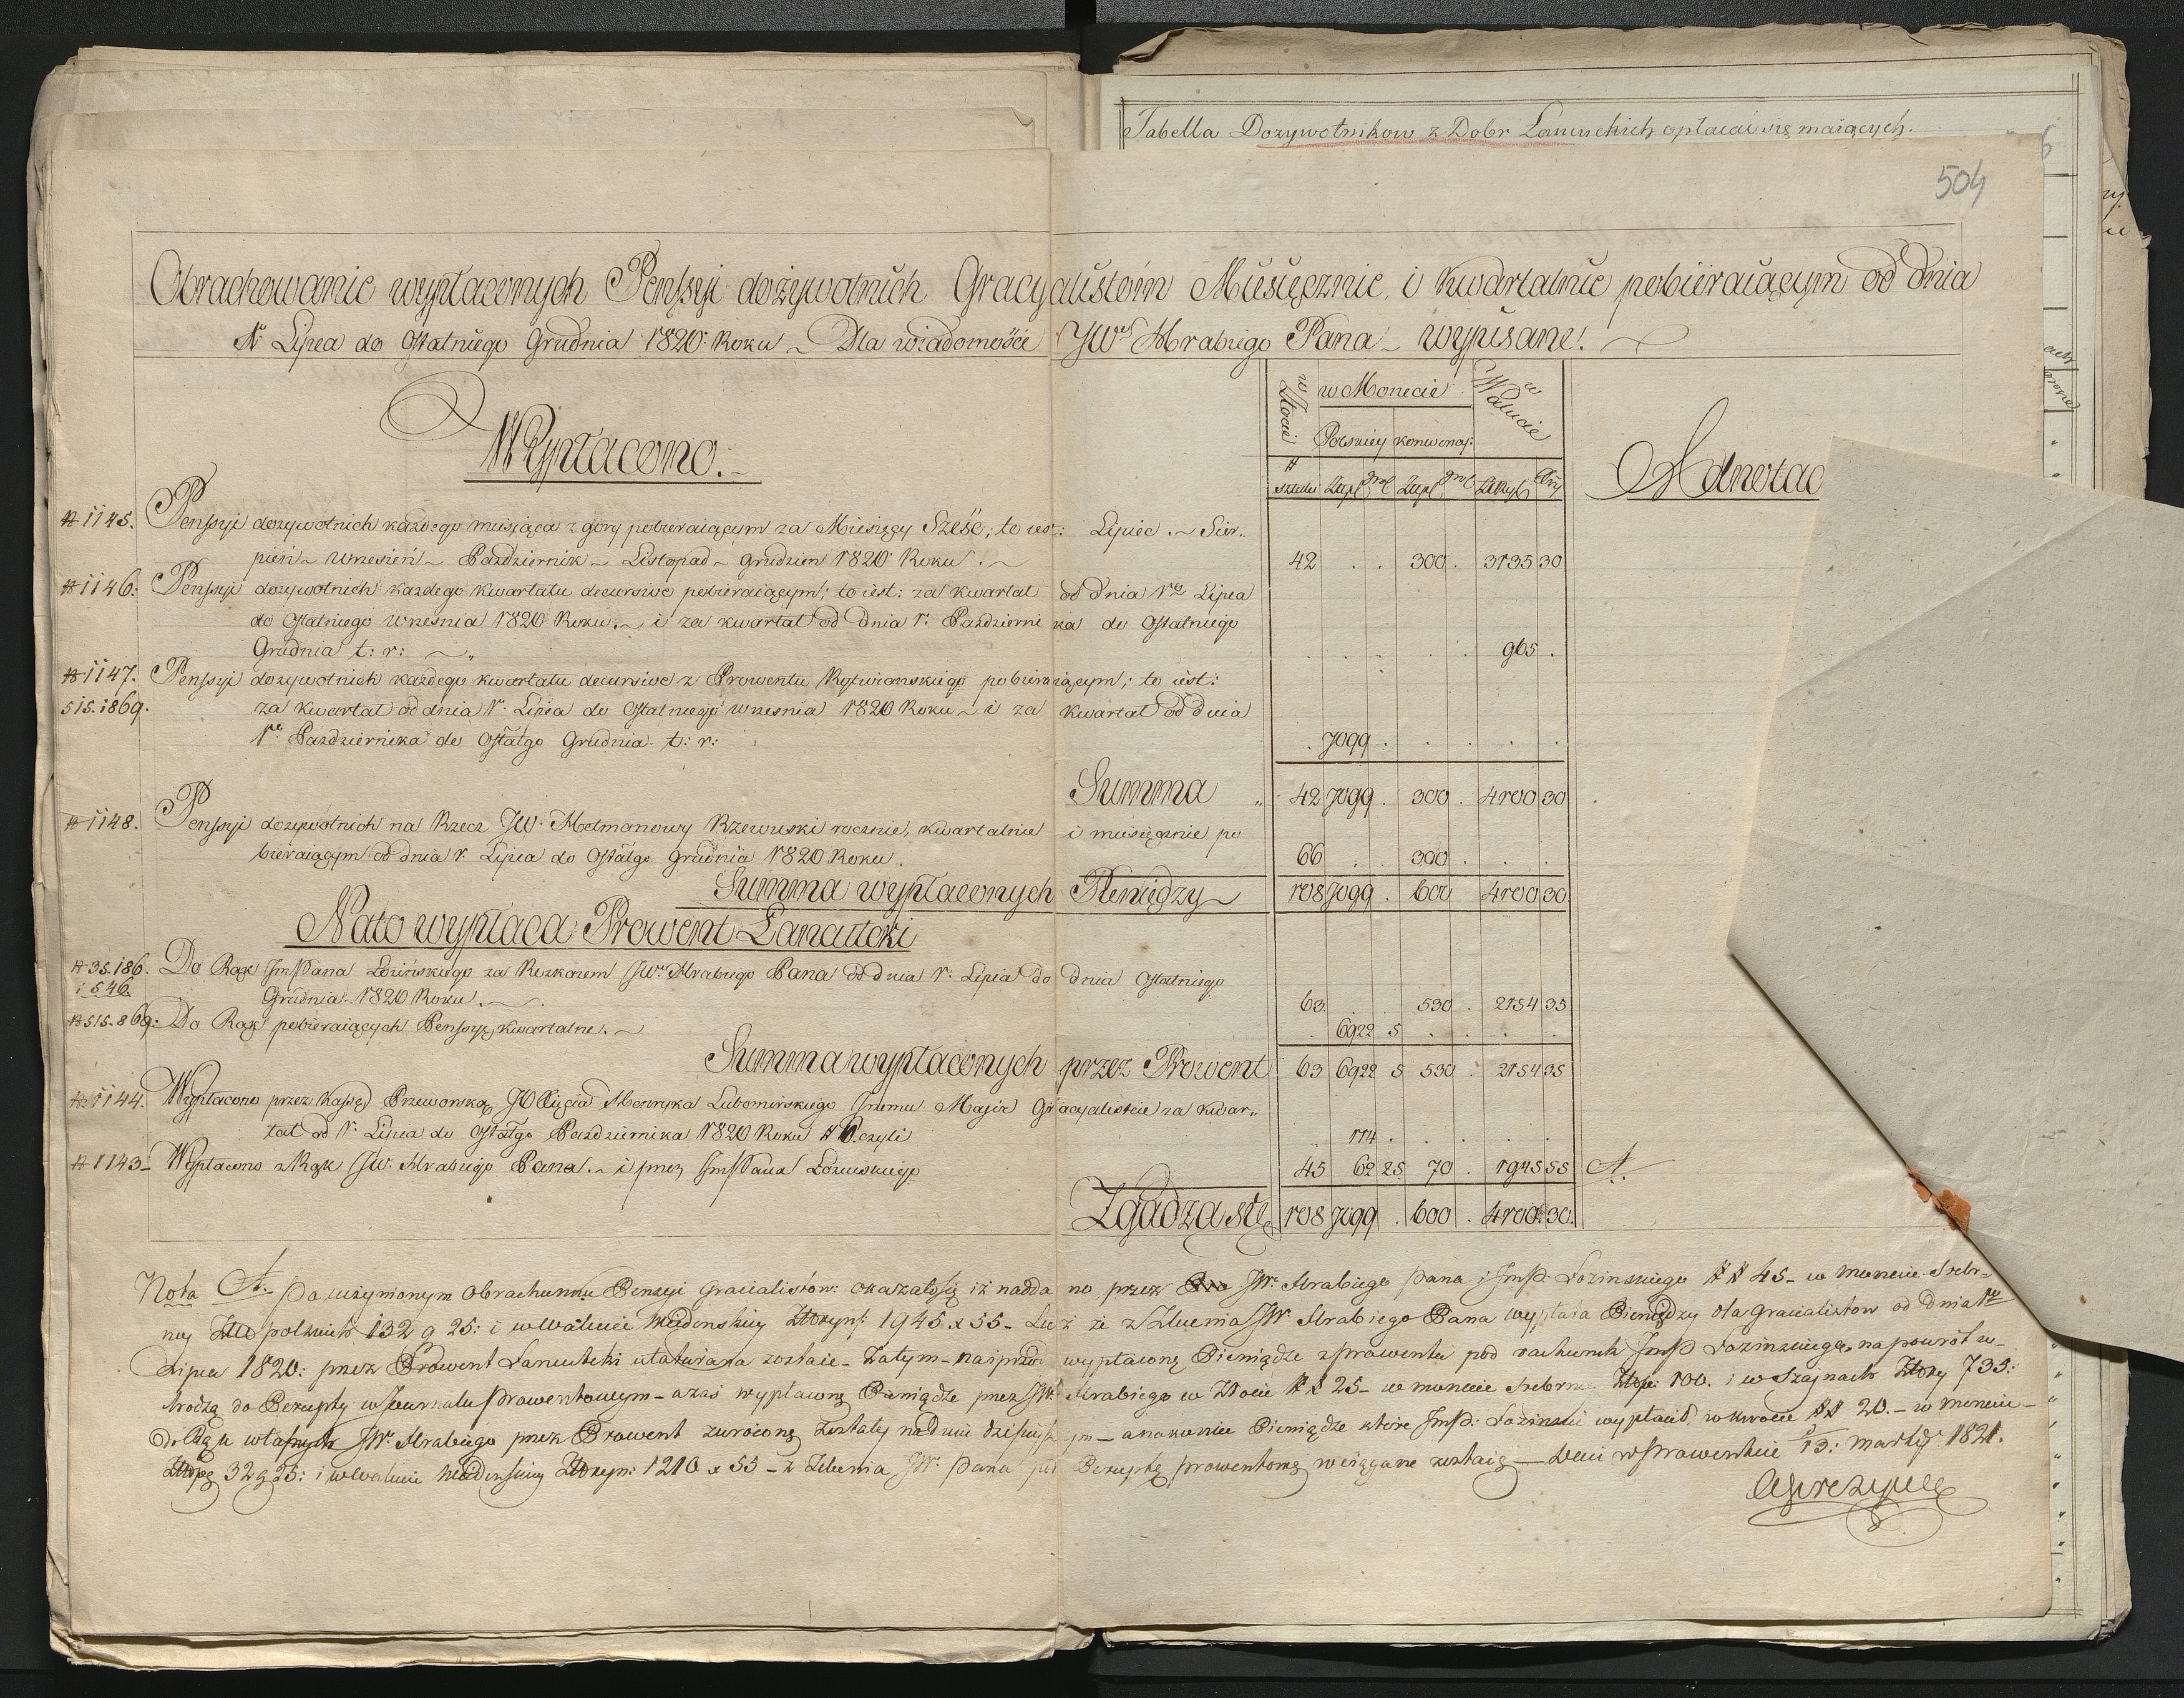 Tabella Dozywotnikow z Dobr Lancuckich opłacać się maiących.
504
Obrachowanie wypłaconych Penssyi dożywotnich Gracyalistóm Miesięcznie, i kwartalnie pobieraiącym od dnia
1º Lipca do Ostatniego Grudnia 1820: Roku ~ Dla wiadomości JWo Hrabiego Pana – wypisane!
w Złocie
w Monecie
w Walucie
Polskiey
konwency:
Wypłacono.
Adnotac
# sztuki Złpl grol Złpl grol ZłRzyl Xry
# 1145. Penssyi dozywotnich każdego miesiąca z gory pobieraiącym za Miesięcy Sześć; to iest: Lipiec ~ Sier-
pień ~ Wrzesień ~ Pazdziernik ~ Listopad ~ Grudzien 1820 Roku. ~ 42 . . 300 . 3135 30
# 1146. Penssyi dozywotnich każdego kwartału decursive pobieraiącym; to iest: za kwartał od dnia 1go Lipca
do Ostatniego Września 1820 Roku. ~ i za kwartał od Dnia 1º Pazdziernika do Ostatniego
Grudnia t: r: ~ . . . . . 965 .
# 1147. Penssyi dozywotnich każdego kwartału decursive z Prowentu Rytwianskiego pobieraiącym; to iest:
515. i 869. za kwartał od dnia 1º Lipca do Ostatniego Września 1820 Roku ~ i za kwartał od dnia
1go Pazdziernika do Ostatgo Grudnia t: r: . 7099 . . . . .
Summa 42 7099 . 300 . 4100 30
# 1148. Penssyi dozywotnich na Rzecz JW: Hetmanowy Rzewuski rocznie, kwartalnie i miesięcznie po
bieraiącym od dnia 1º Lipca do Ostatgo Grudnia 1820 Roku. 66 . . 300 . . .
Summa wypłaconych Pieniędzy 108 7099 . 600 4100 30
Nato wypłaca Prowent Łancutcki
# 35. 186. Do Rąk JmPana Łozińskiego za Rozkazem JWo Hrabiego Pana od dnia 1º Lipca do dnia Ostatniego
i 546. Grudnia 1820 Roku. ~ 63 . . 530 . 2154 35
# 515. 869: Do Rąk pobieraiących Penssye kwartalne. ~ . 6922 5 . . . .
Summa wypłaconych przez Prowent 63 6922 5 530 . 2154 35
# 1144. Wypłacono przez Kassę Przeworską JOXięcia Henryka Lubomirskiego Gracyaliście za kwar-
tał od 1º Lipca do Ostatgo Pazdziernika 1820 Roku czyli . 114 . . . . .
# 1143 – Wypłacono z Rąk JW: Hrabiego Pana ~ i przez JmPana Łozinskiego 45 62 25 70 . 1945 55 A.
Zgadza się 108 7099 . 600 . 4100 30.
Nota A. Po uczynionym Obrachunku Pensyi Gracialistow okazało się iż naddano przez JW: Hrabiego Pana i JmP: Łozinskiego ## 45 – w monecie Srebr-
ney polskich 132 g 25: i w Walucie Wiedenskiey 1945 x 55 – Lecz że z Zlecenia JW: Hrabiego Pana wypłata Pieniędzy dla Gracialistow od dnia 1go
Lipca 1820: przez Prowent Łancutcki ułatwiana zostaie – Zatym – naiprzod wypłacone Pieniądze z prowentu pod rachunek JmP Łozinskiego, na powrót w-
chodzą do Percepty w Journalu prowentowym – a zaś wypłacone Pieniądze przez JW: Hrabiego w Złocie ## 25 – w monecie srebrnei 100. i w Szajnach 735:
do Rąk własnych JW: Hrabiego przez Prowent zwrócone zostały na dniu dzisieyszym – a nakoniec Pieniądze które JmP: Łozinski wypłacił, w kwocie ## 20. – w monecie –
32 g 25: i w Walucie Wiedenskiey 1210 x 55 – z Zlecenia JW: Pana pod Perceptę prowentową wciągane zostaią — w Prowentcie 13: Marty 1821.